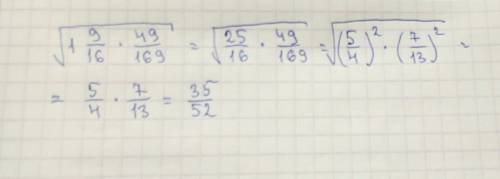 √(1 9/16 · 49/169) = √(25/16 · 49/169) = √((5/4)² · (7/13)²) =
= 5/4 · 7/13 = 35/52